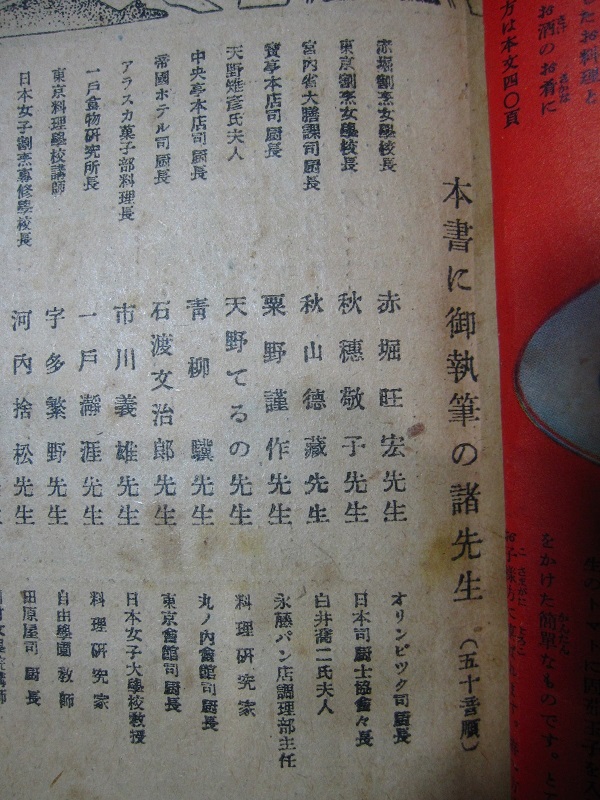 本書に御執筆の諸先生（五十音順）
赤堀割烹女學校長
赤堀旺宏先生
東京割烹女學校長
秋穗敬子先生
宮內省大膳課司厨長
秋山德藏先生
寶亭本店司厨長
粟野謹作先生
天野雉彥氏夫人
天野てるの先生
中央亭本店司厨長
靑柳驥先生
帝國ホテル司厨長
石渡文治郞先生
アラスカ菓子部料理長
市川義雄先生
一戶食物硏究所長
一戶瀞涯先生
東京料理學校講師
宇多繁野先生
日本女子割烹專修學校長
河內捨松先生
オリンピツク司厨長
日本司厨士協會々長
白井喬二氏夫人
永藤パン店調理部主任
料理硏究家
丸ノ內會館司厨長
東京會館司厨長
日本女子大學校敎授
料理硏究家
自由學園敎師
田原屋司厨長
したお料理と
お酒のお肴に
さかな
方は本文四〇頁
をかけた簡單なものです。と
かんたん